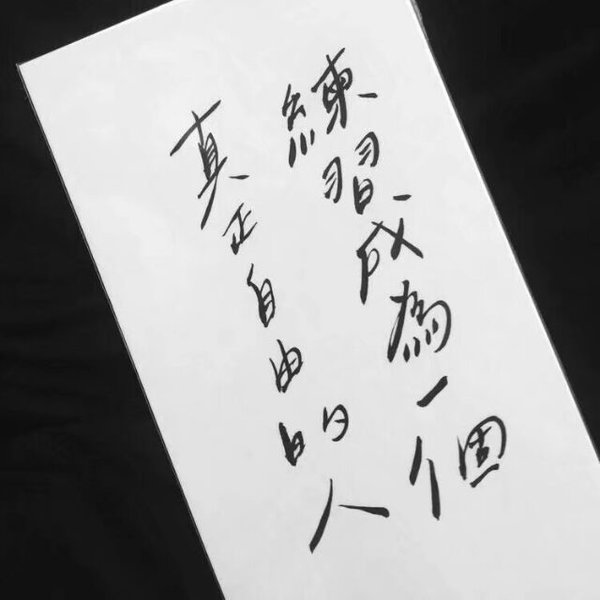 練習成為一個
真正自由的人